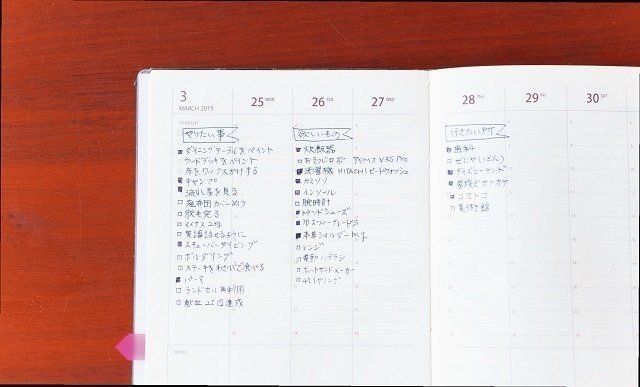 3
MARCH 2019
25 MON
26 TUE
27 WED
28 THU
29 FRI
30 SAT
TO DO LIST
やりたい事
ダイニングテーブルをペイント
ウッドデッキをペイント
床をワックスがけする
キャンプ
流れ星を見る
座布団カバーぬう
脱毛完る
マイナス2キロ
英語話せるように
スキューバーダイビング
ボルダリング
ステーキをわさびで食べる
パーマ
ランドセル再利用
献血25回達成
MEMO
欲しいもの
炊飯器
おそうじロボ
洗濯機 HITACHI ビートウォッシュ
カミソリ
インソール
腕時計
トランプシューズ
本革ショルダー
レンジ
電動ハブラシ
ホットサンドメーカー
イヤリング
行きたい所
歯科
ディズニーランド
家族とカラオケ
コストコ
美術館